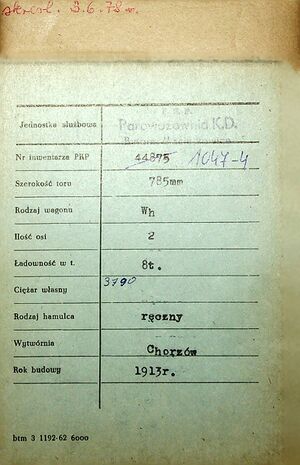 skreśl. 3.6.78 r.
P.K.P.
Jednostka służbowa Parowozownia K.D.
Nr inwentarza PKP 44875 1047-4
Szerokość toru 785mm
Rodzaj wagonu Wh
Ilość osi 2
Ładowność w t. 8t.
Ciężar własny 3790
Rodzaj hamulca ręczny
Wytwórnia Chorzów
Rok budowy 1913r.
btm 3 1192-62 6000